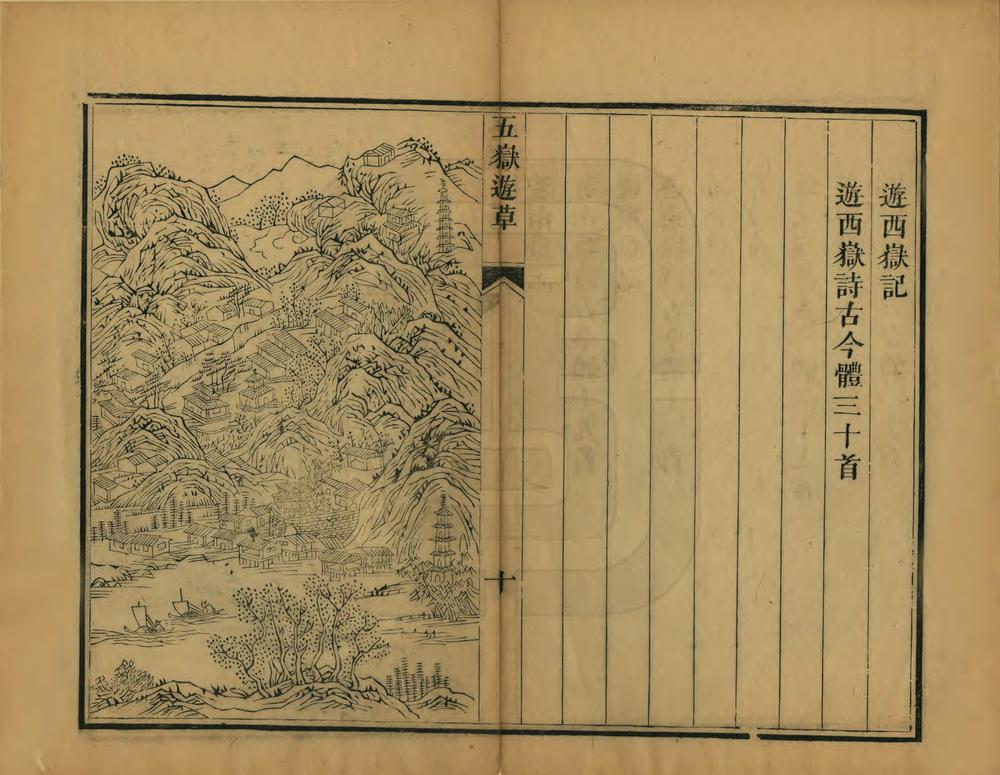 遊西嶽記
遊西嶽詩古今體三十首
五嶽遊草
十